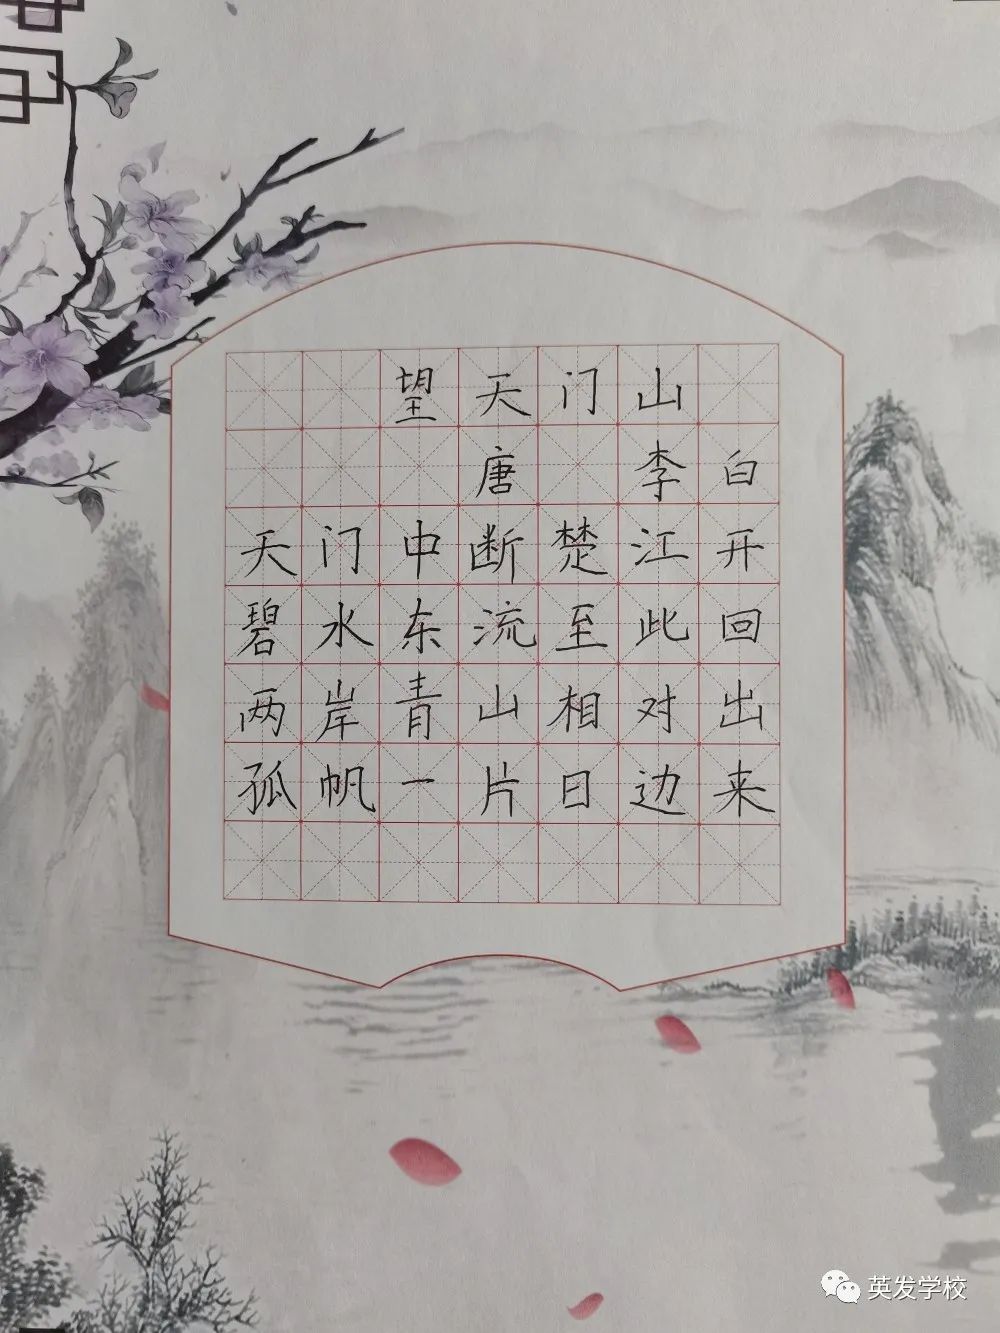 望天门山
唐 李白
天门中断楚江开
碧水东流至此回
两岸青山相对出
孤帆一片日边来
英发学校